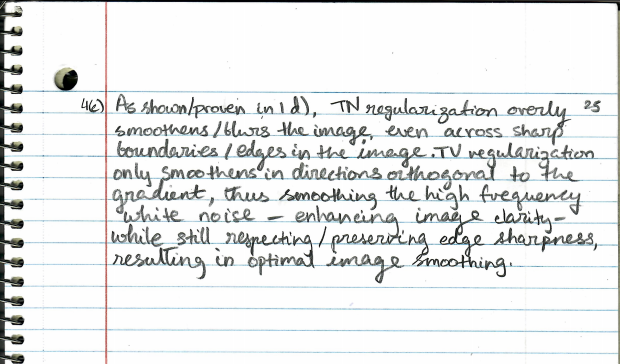 4(c) As shown/proven in 1d), TN regularization overly 25
smoothens/blurs the image, even across sharp
boundaries/edges in the image. TV regularization
only smoothens in directions orthogonal to the
gradient, thus smoothing the high frequency
white noise - enhancing image clarity -
while still respecting/preserving edge sharpness,
resulting in optimal image smoothing.